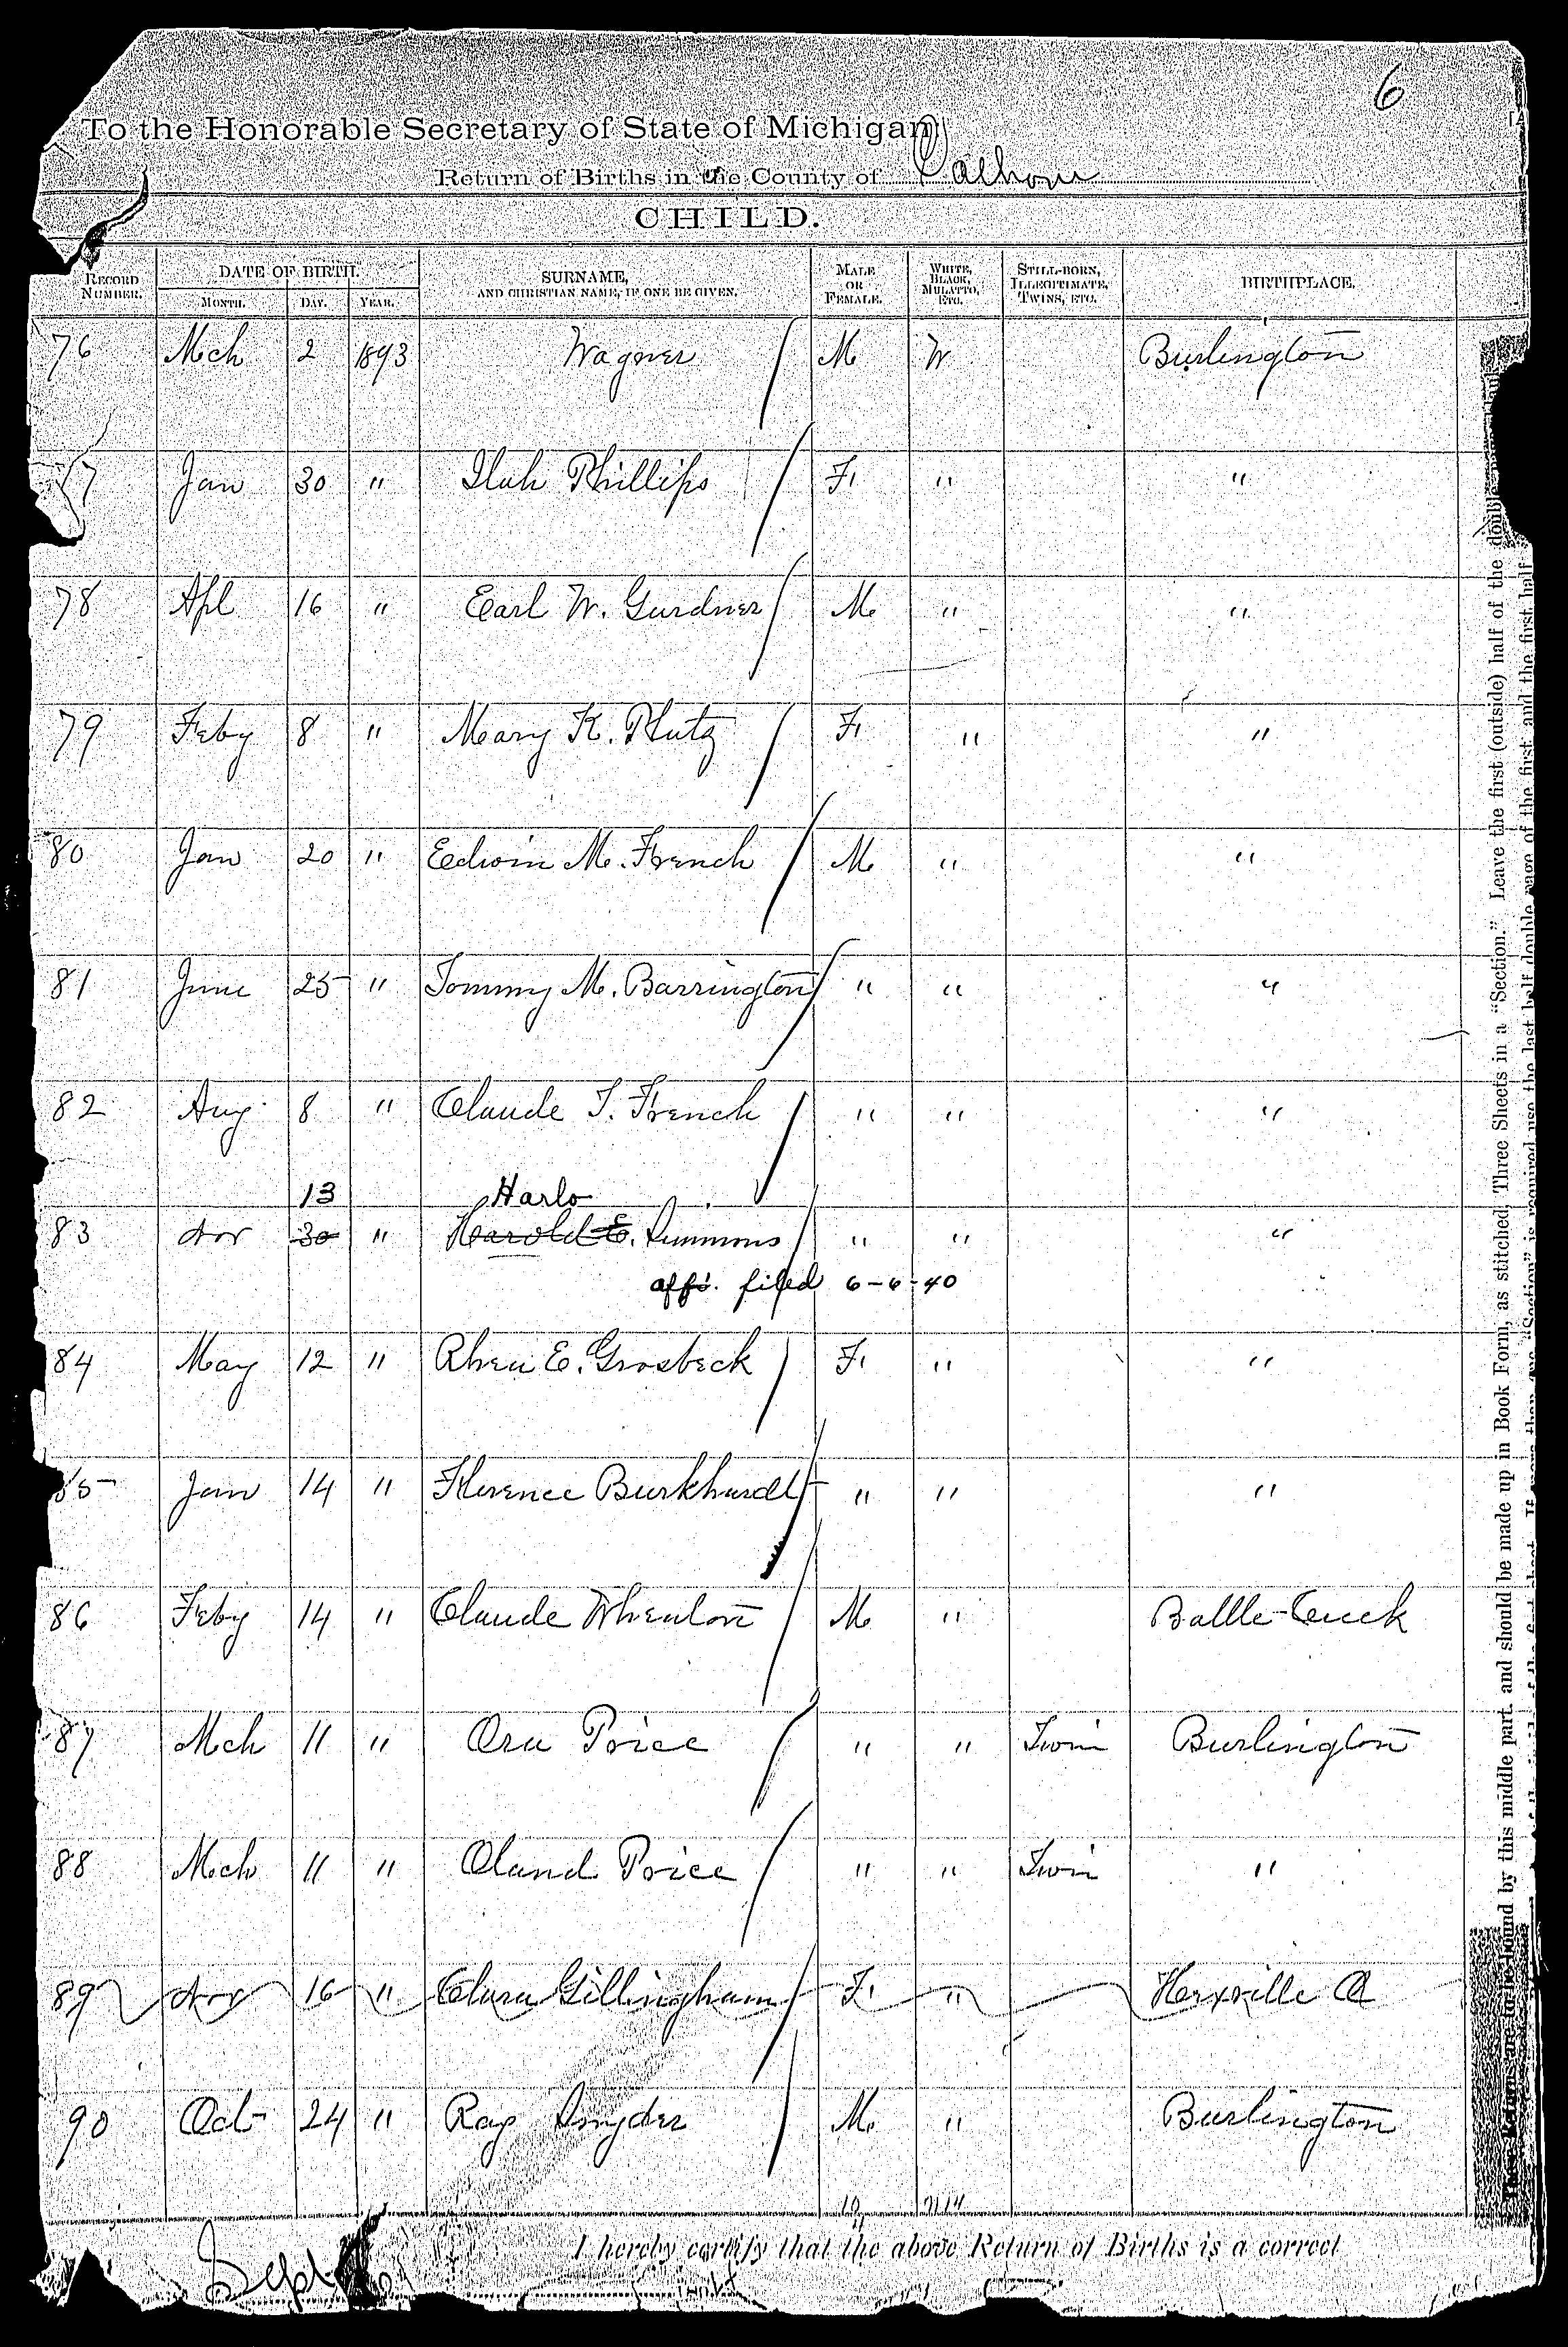 6
To the Honorable Secretary of State of Michigan
Return of Births in the County of Calhoun
CHILD.
RECORD NUMBER. DATE OF BIRTH. MONTH. DAY. YEAR. SURNAME, AND CHRISTIAN NAME, IF ONE BE GIVEN. MALE OR FEMALE. WHITE, BLACK, MULATTO, ETC. STILL-BORN, ILLEGITIMATE, TWINS, ETC. BIRTHPLACE.
76 Mch 2 1893 Wagner M W Burlington
77 Jan 30 " Ilah Phillips F " "
78 Apl 16 " Earl W. Gardner M " "
79 Feby 8 " Mary K. Plutz F " "
80 Jan 20 " Edwin M. French M " "
81 June 25 " Tommy M. Barrington " " "
82 Aug 8 " Claude T. French " " "
13 Harlo
83 Nov 30 " Harold E. Simmons " " "
aff. filed 6-6-40
84 May 12 " Rhea E. Grosbeck F " "
85 Jan 14 " Florence Burkhardt " " "
86 Feby 14 " Claude Wheaton M " Battle-Creek
87 Mch 11 " Ora Price " " Twin Burlington
88 Mch 11 " Oland Price " " Twin "
89 Nov 16 " Clara Gillingham F "
90 Oct 24 " Ray Snyder M " Burlington
I hereby certify that the above Return of Births is a correct
Sept
Three Sheets in a "Section." Leave the first (outside) half of the double
These Returns are to be bound by this middle part and should be made up in Book Form, as stitched,